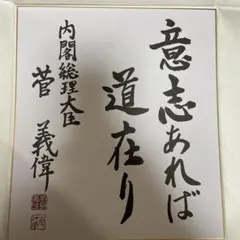 意志あれば
道在り
内閣総理大臣
菅義偉